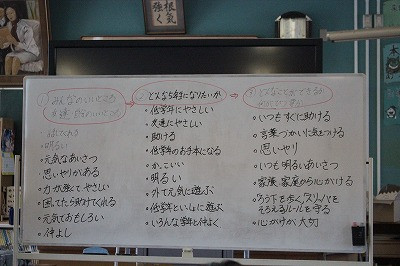 根気
強く
① みんなのいいところ
友達のいいところ
② どんな5年になりたいか
③ どんなことができるか
・明るい
・元気なあいさつ
・思いやりがある
・力が強くてやさしい
・困ってたら助けてくれる
・元気でおもしろい
・仲よし
・低学年にやさしい
・友達にやさしい
・助ける
・低学年のお手本になる
・かっこいい
・明るい
・外で元気に遊ぶ
・低学年といっしょに遊ぶ
・いろんな学年と仲よく
・いつもすぐに助ける
・言葉づかいに気をつける
・思いやり
・いつも明るいあいさつ
・家族、家庭から心がける
・ろう下を歩く、スリッパを
そろえる、ルールを守る
・心がけが大切